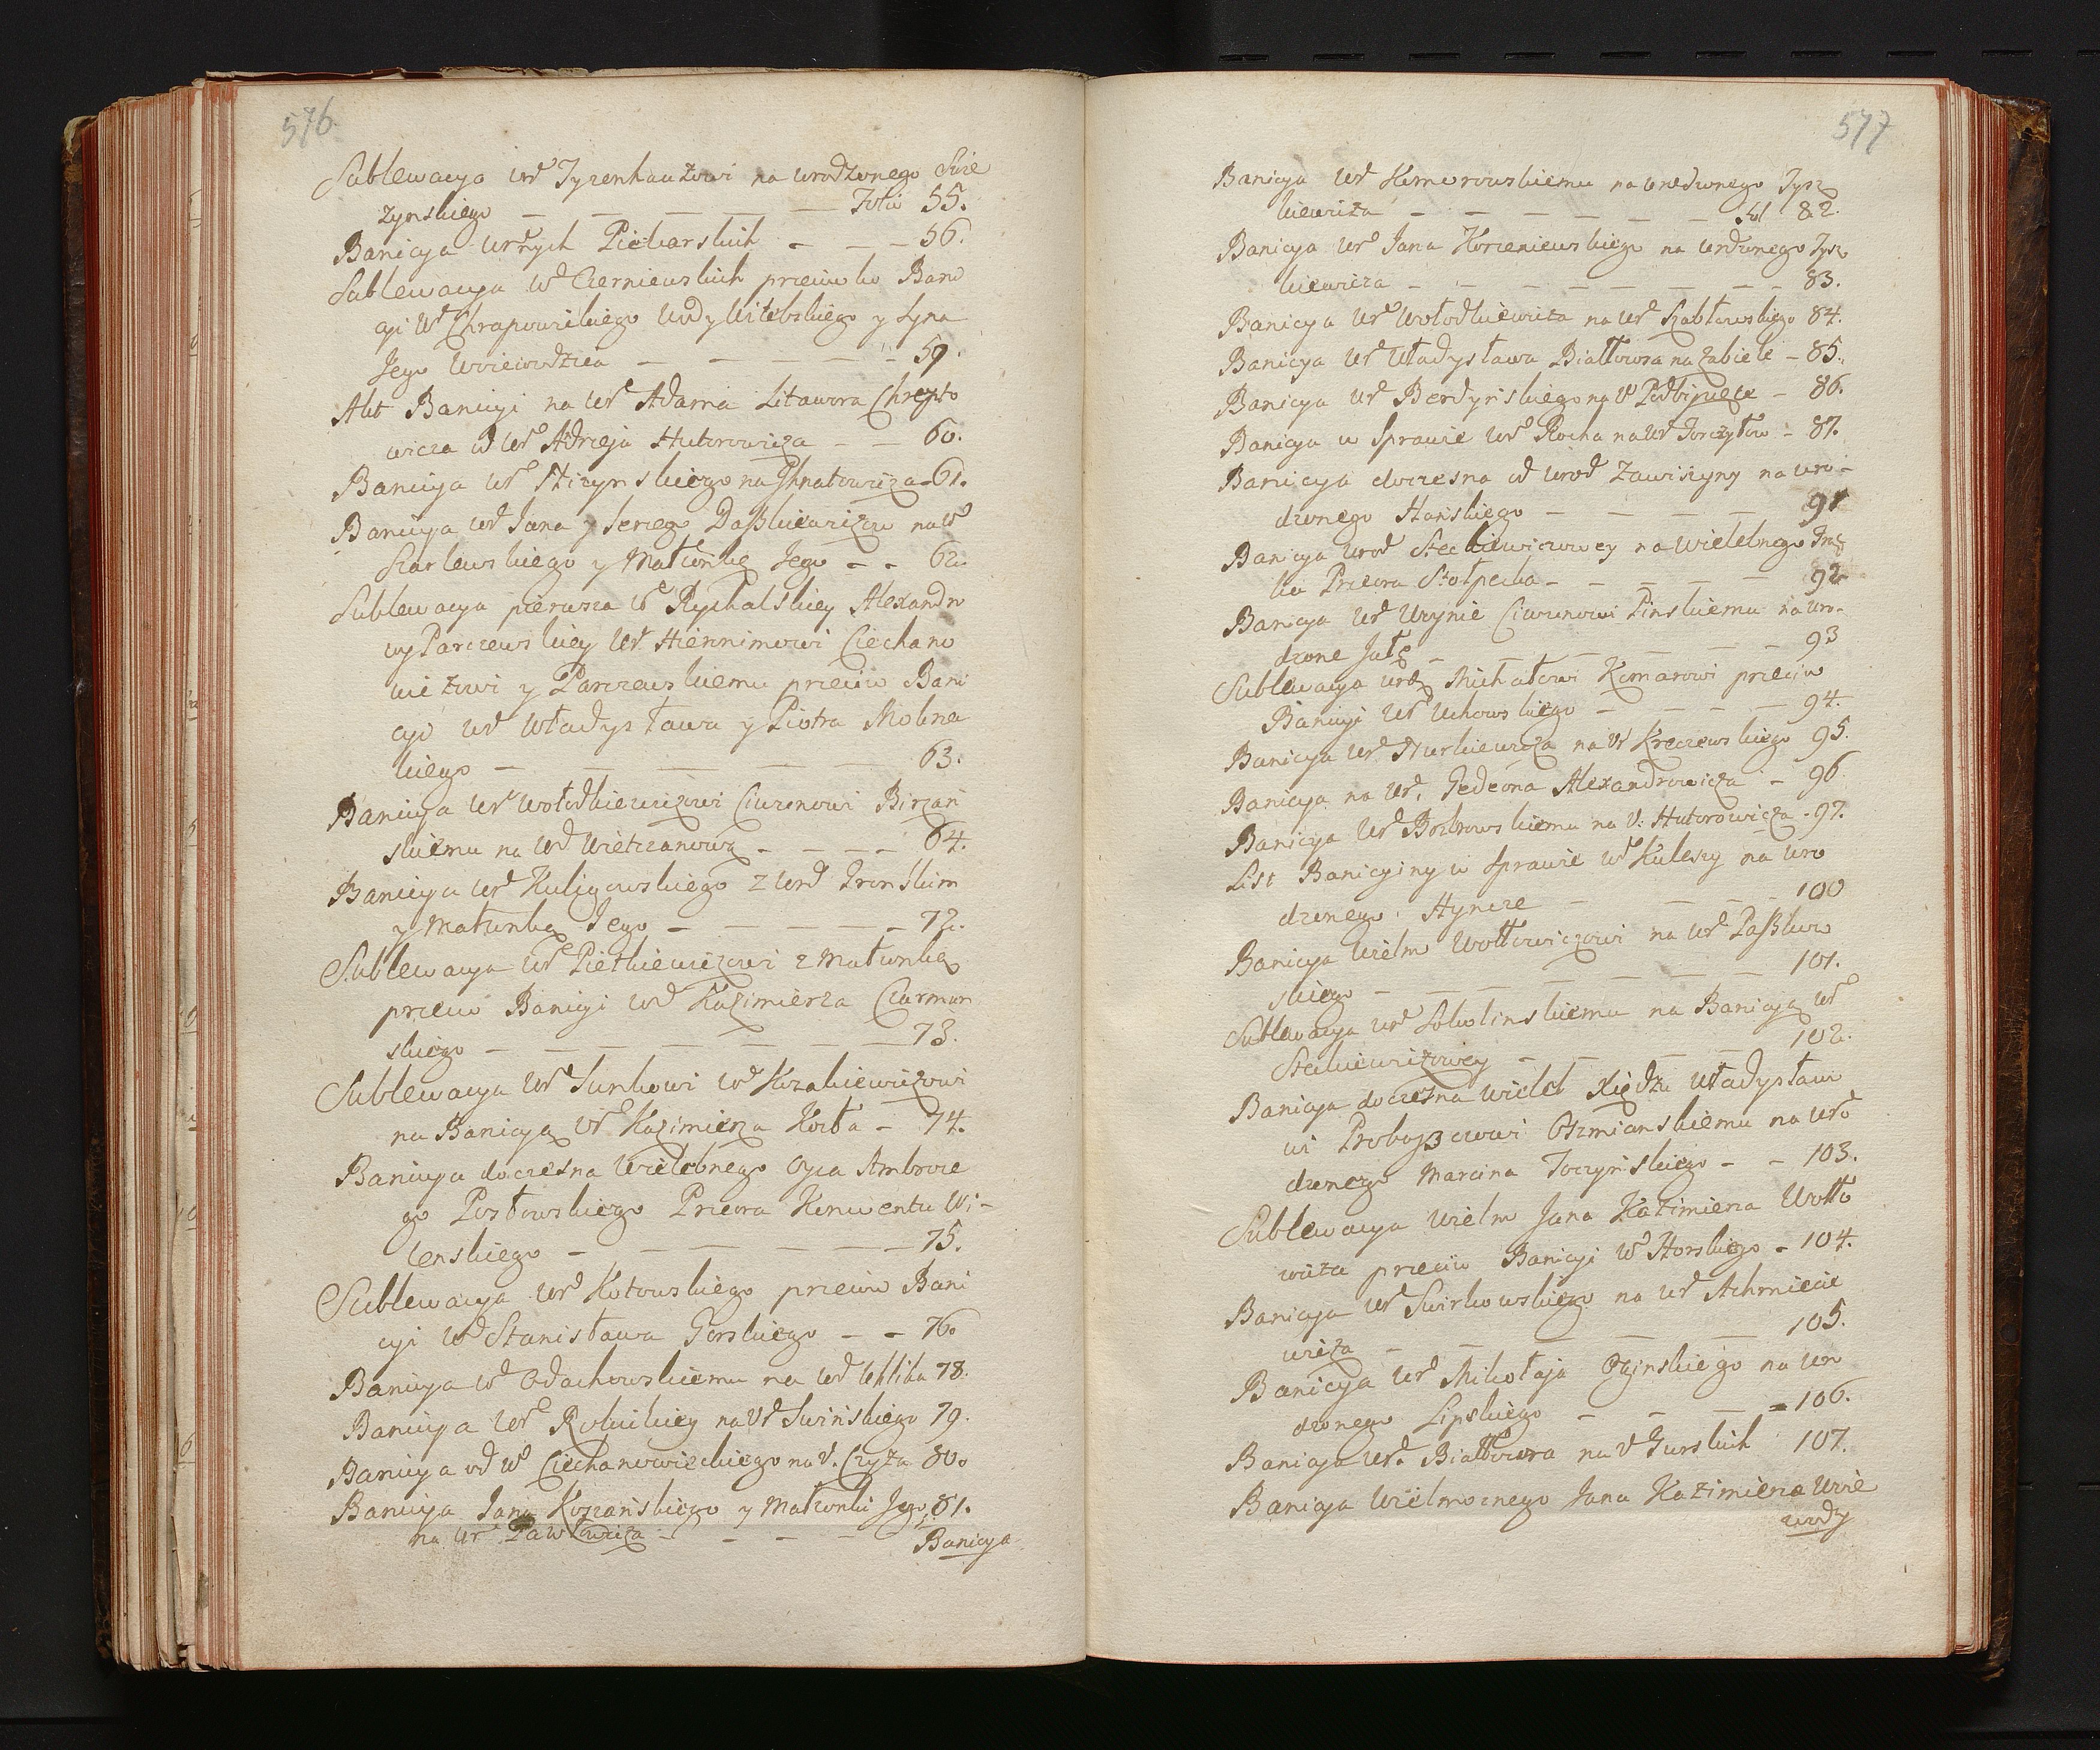 576
Sublewacya Urd Tyzenhauzowi na urodzonego Swie
zynskiego — — — — — Folio 55.
Banicya Urdnych Piekarskich - — — 56.
Sublewacya Ur Czerniewskich przeciwko Bani
cyi Ur Chrapowickiego Wdy Witebskiego y Syna
Jego Woiewodzica — — — — — 59.
Akt Banicyi na Ur Adama Litawora Chrepto
wicza od Ur Adrieja Hutorowicza — — 60.
Banicya Ur Hizynskiego na Ihnatowicza - 61.
Banicya Ur Jana y Jerzego Daszkiewiczow na Ur
Szarlewskiego y Małżonkę Jego - - 62.
Sublewacya pierwsza Ur Rychalskiey Alexandro
wy Parczewskiey Ur Hieronimowi Ciechano
wiczowi y Parczewskiemu przeciw Bani
cyi Ur Władysława y Piotra Mokrze
kiego — — — — — 63.
Banicya Ur Wołodkiewiczowi Ciwunowi Birżań
skiemu na Ur Wietrzanową - - - - 64.
Banicya Ur Kuligowskiego z Urd Pronskim
y Małżonką Jego - — — — - 72.
Sublewacya Ur Pietkiewiczowi z Małżonką
przeciw Banicyi Ur Kazimierza Czarmun
skiego — — — — — — 73.
Sublewacya Ur Sunkowi Ur Kozakiewiczowi
na Banicyą Ur Kazimierza Kotła - 74.
Banicya doczesna Wielebnego Oyca Ambroże
go Posłowskiego Przeora Konwentu Wi-
lenskiego — — — — — 75.
Sublewacya Ur Kotowskiego przeciw Bani
cyi Ur Stanisława Gorskiego - - 76.
Banicya Ur Odachowskiemu na Ur Uhlika 78.
Banicya Ur Rokickiey na Ur Swinskiego 79.
Banicya od Ur Ciechanowieckiego na U. Czyża 80.
Banicya Jana Koszanskiego y Małżonki Jego 81.
na Ur Pawłowicza - - - -
Banicya
577
Banicya Ur Komorowskiemu na urodzonego Tysz
kiewicza — — — — — — Fol 82.
Banicya Ur Jana Korzeniewskiego na Urdzonego Tysz
kiewicza — — — — — — 83.
Banicya Ur Wołodkiewicza na Ur Szabłowskiego 84.
Banicya Ur Władysława Białłozora na Zabiełę - 85.
Banicya Ur Berdynskiego na U Podbipiętę - 86.
Banicya w Sprawie Ur Rocha na Ur Jorczyłow - 87.
Banicya doczesna od Urod Zawiszyny na Uro-
dzonego Stanskiego — — — — 91
Banicya Urod Steckiewiczowey na Wielebnego Fran
ka Przeora Stołpecka - — — — 92
Banicya Ur Woynie Ciwunowi Pinskiemu na Uro-
dzone Jułę — — — — — 93
Sublewacya Urdz Michałowi Komarowi przeciw
Banicyi Ur Uchowskiego — — — 94.
Banicya Ur Nurkiewicza na Ur Kreczewskiego 95.
Banicya na Ur. Gedeona Alexandrowicza - 96
Banicya Ur Bobrowskiemu na U: Hutorowicza - 97.
List Banicyiny w Sprawie Ur Kuleszy na Uro
dzonego Hyncze — — — — 100
Banicya Wielm Wołłowiczowi na Ur Paszkow
skiego — — — — — 101.
Sublewacya Ur Sokolinskiemu na Banicyą Ur
Steckiewiczowey — — — — 102.
Banicya doczesna Wieleb Xiędzu Władysław
wi Proboszczowi Oszmianskiemu na Uro
dzonego Marcina Toczynskiego - - 103.
Sublewacya Wielm Jana Kazimierza Wołło
wicza przeciw Banicyi Ur Horskiego - 104.
Banicya Ur Swirkowskiego na Ur Achmiecie
wicza — — — — 105.
Banicya Ur Mikołaja Oginskiego na Uro
dzonego Lipskiego — — — 106.
Banicya Ur. Białłozora na U Gurskich 107.
Banicya Wielmoznego Jana Kazimierza Woie
wody